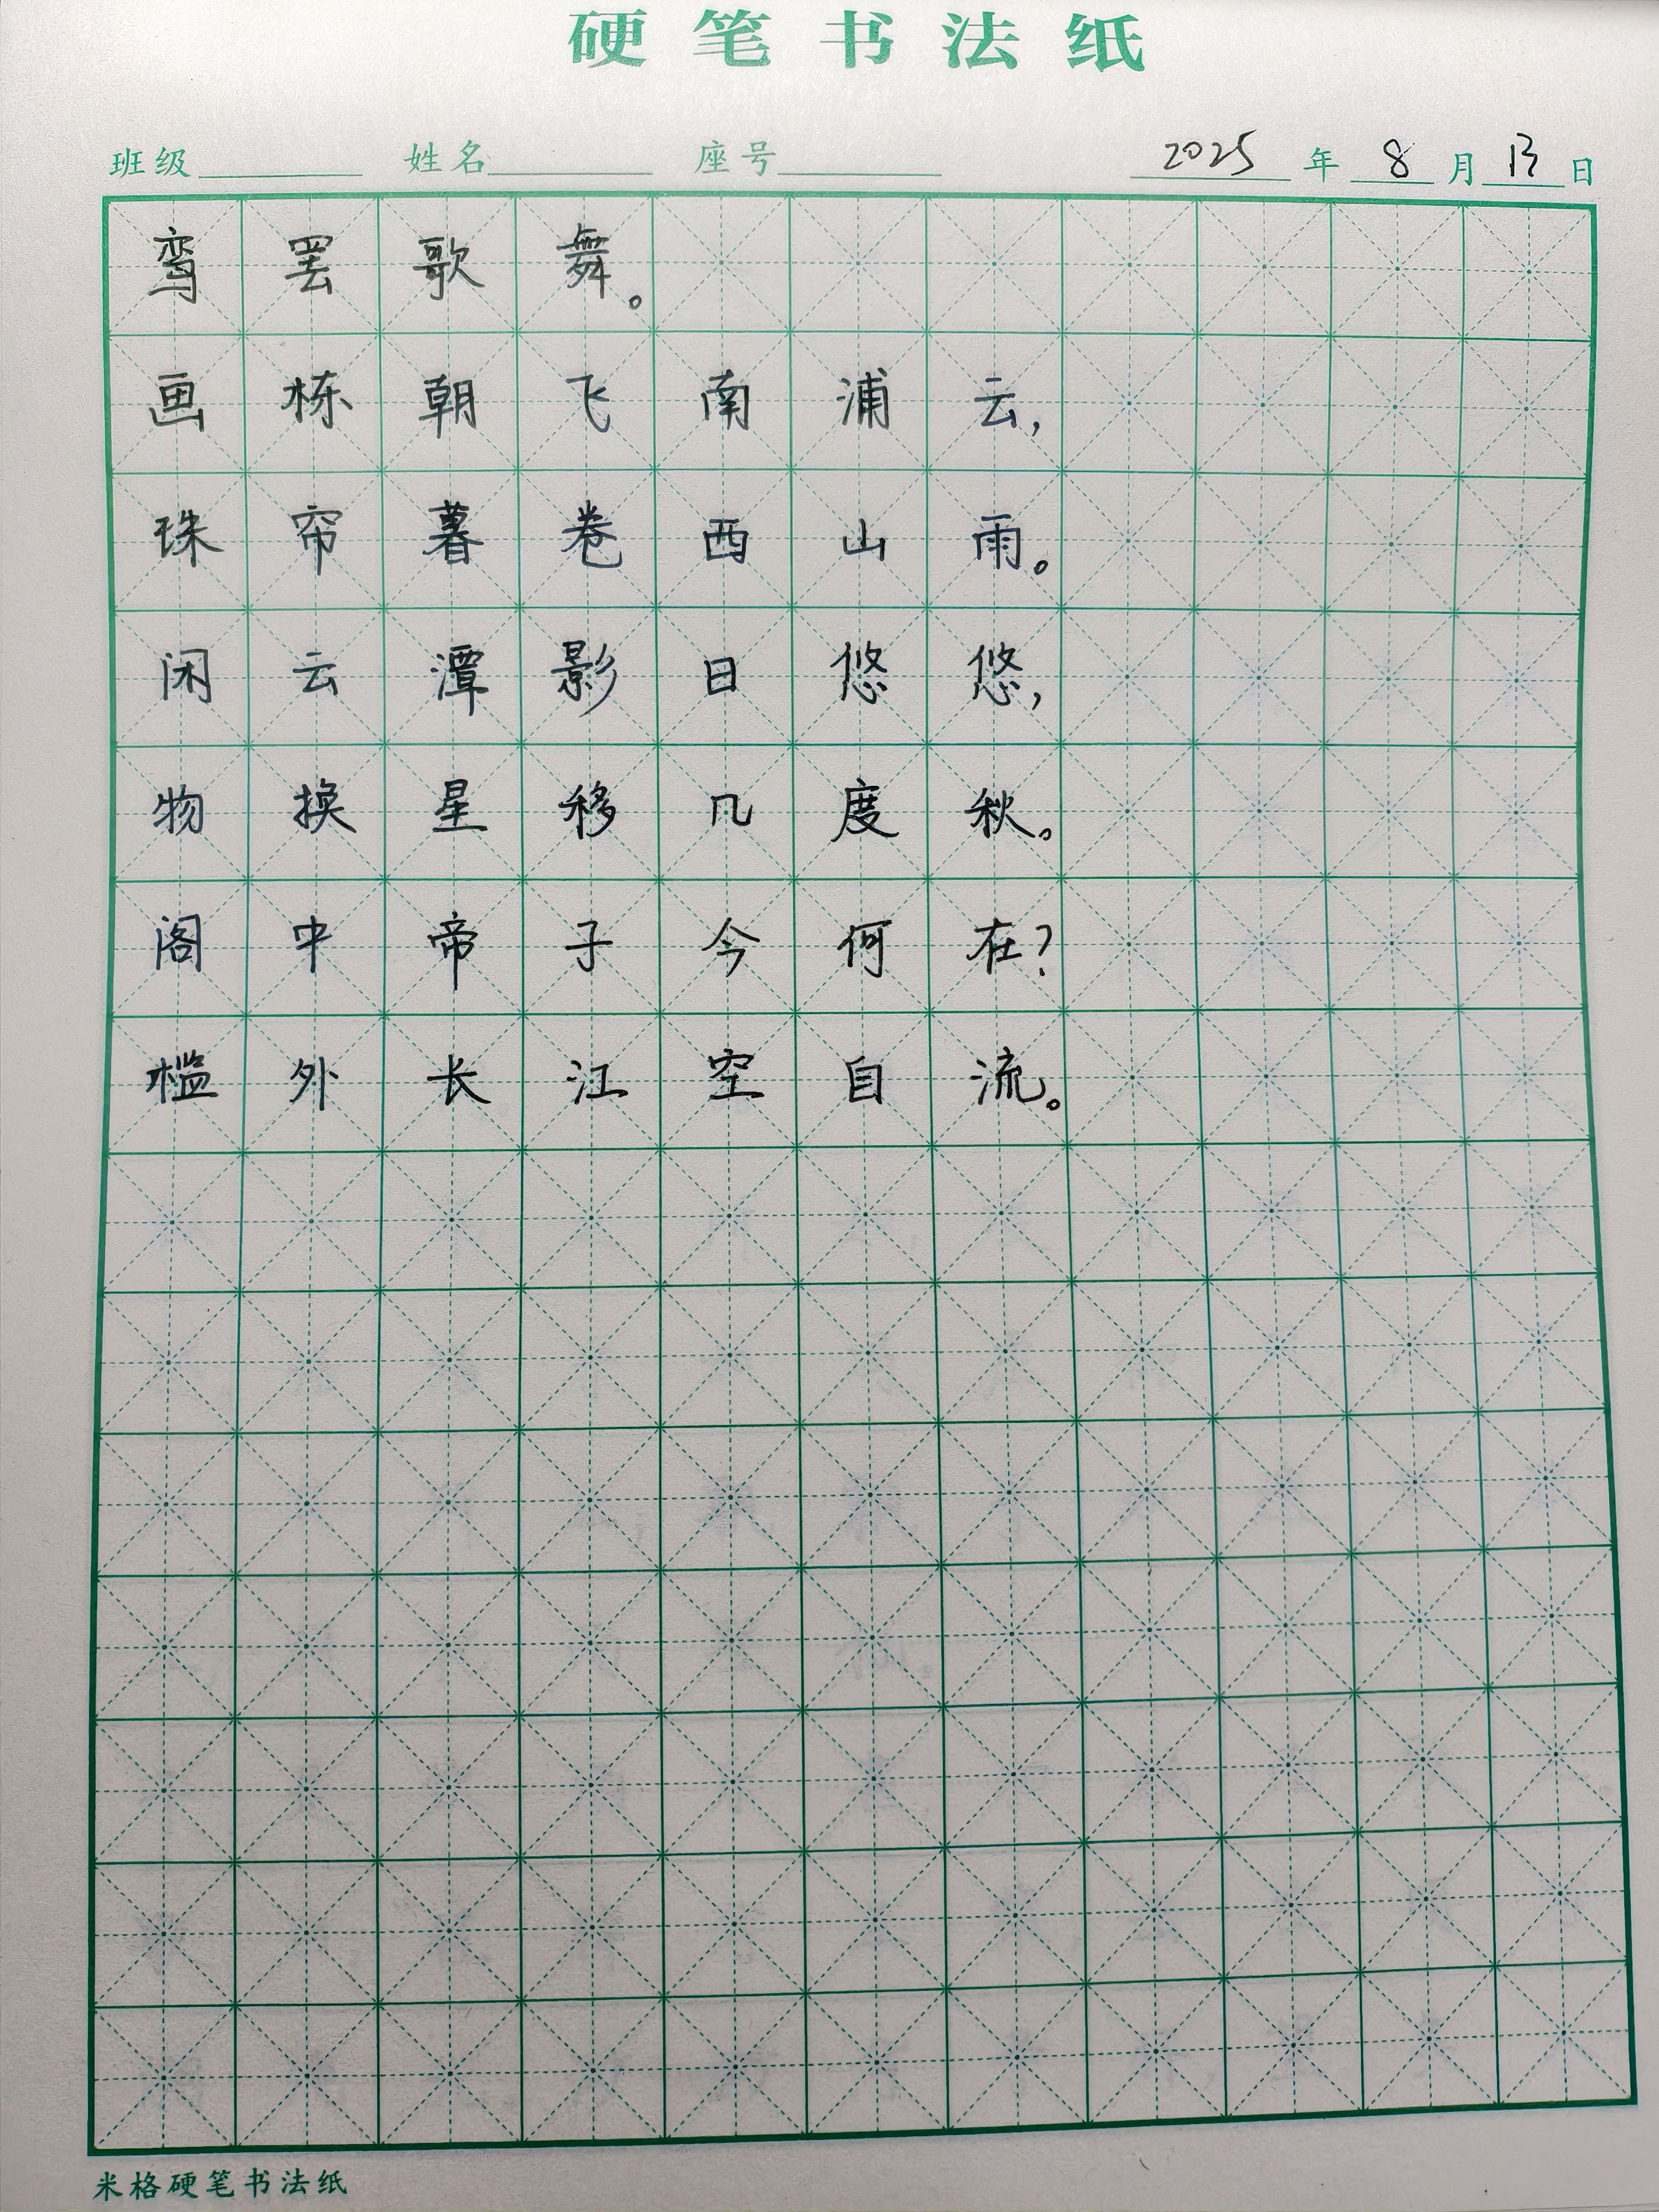 硬笔书法纸
班级 姓名 座号 2025 年 8 月 13 日
鸾罢歌舞。
画栋朝飞南浦云,
珠帘暮卷西山雨。
闲云潭影日悠悠,
物换星移几度秋。
阁中帝子今何在?
槛外长江空自流。
米格硬笔书法纸